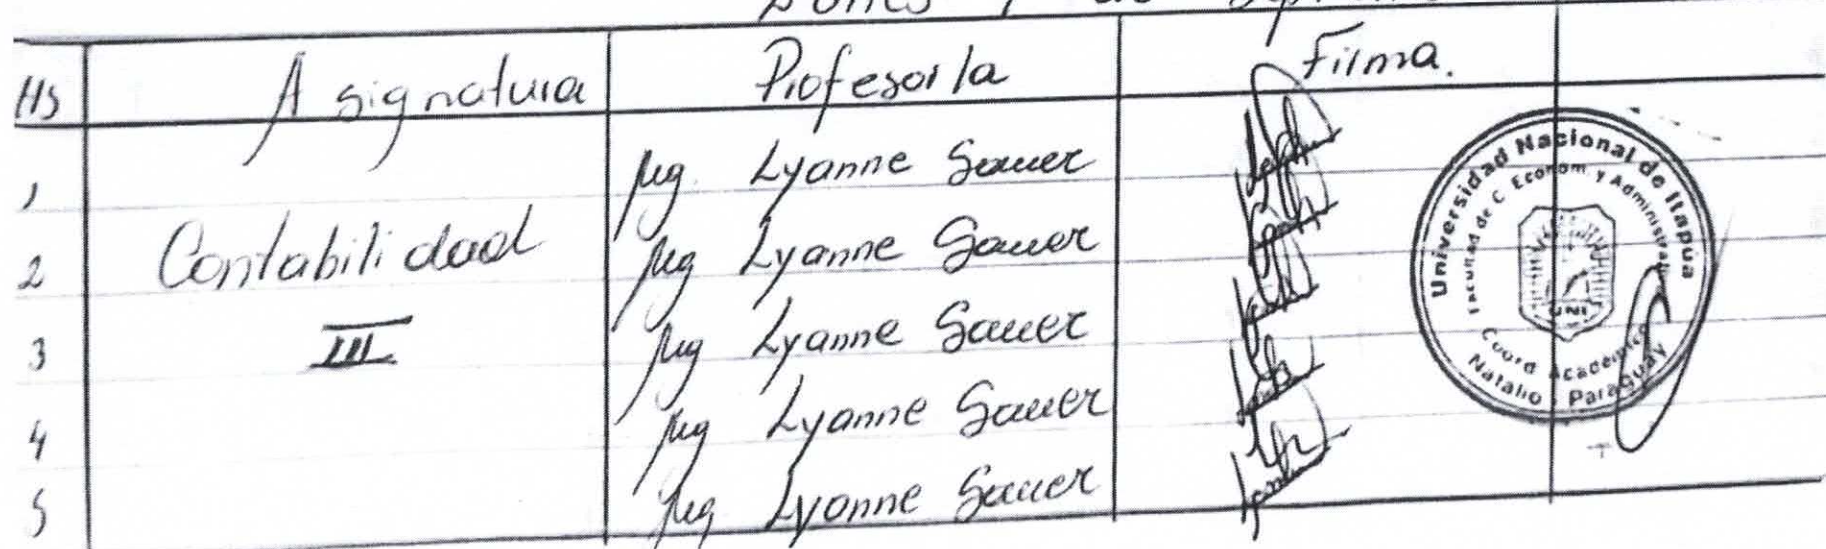 Lunes de
Hs Asignatura Profesor/a Firma.
1 Mg Lyanne Sauer
2 Contabilidad Mg Lyanne Sauer
3 III Mg Lyanne Sauer
4 Mg Lyanne Sauer
5 Mg Lyanne Sauer
Universidad Nacional de Itapua
Facultad de C Econom y Administrativas
UNI
Coord Académica
Natalio - Paraguay